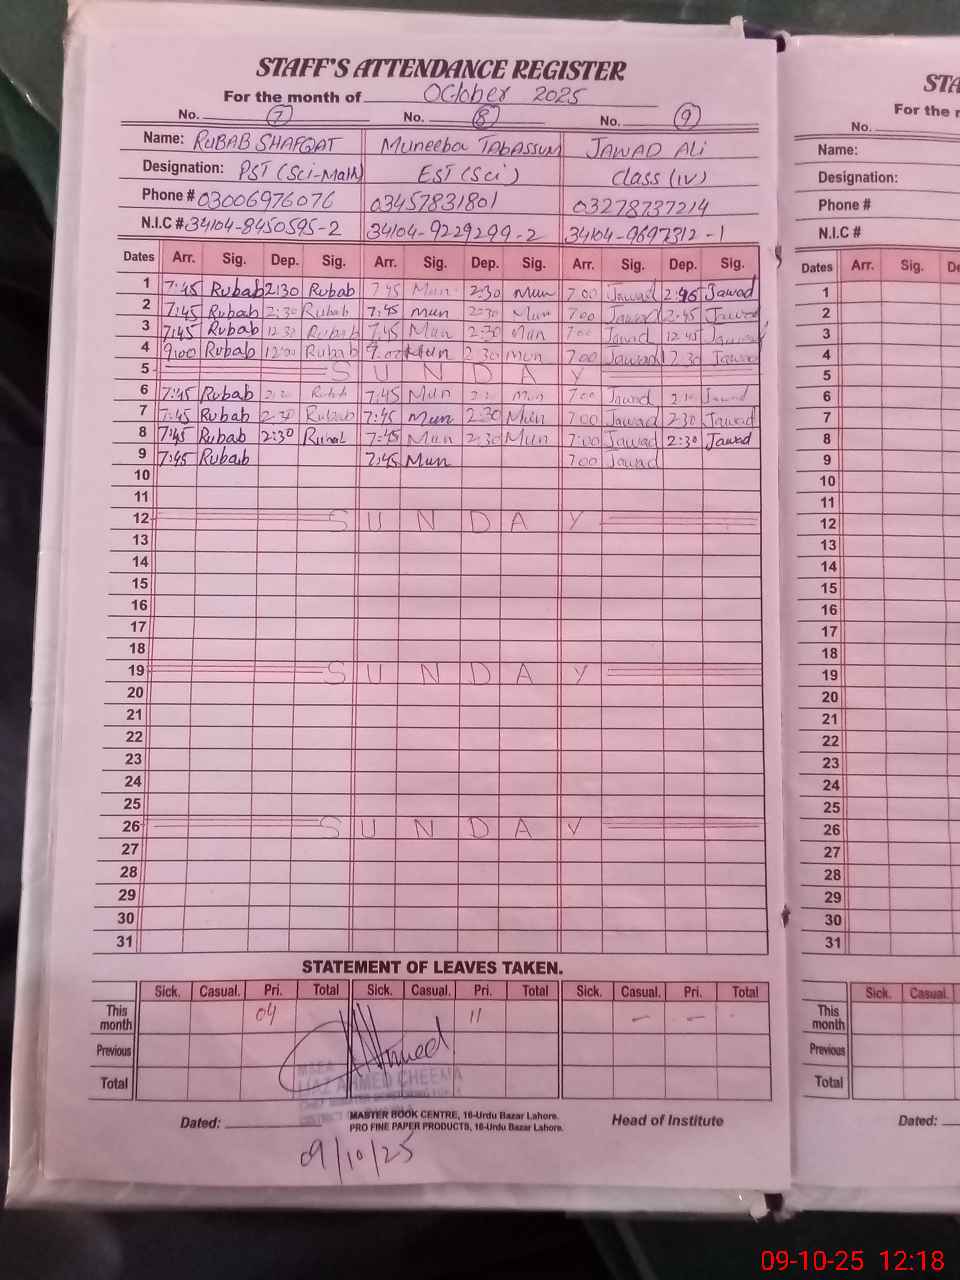 STAFF'S ATTENDANCE REGISTER
For the month of October 2025
No. 7 No. 8 No. 9
Name: RUBAB SHAFQAT Muneeba TABASSUM JAWAD ALi
Designation: PST (Sci-Math) EST (Sci) Class (iv)
Phone # 03006976076 03457831801 03278737214
N.I.C # 34104-8450595-2 34104-9229299-2 34104-9697312-1
Dates Arr. Sig. Dep. Sig. Arr. Sig. Dep. Sig. Arr. Sig. Dep. Sig.
1 7:45 Rubab 2:30 Rubab 7 45 Mun 2:30 Mun 7 00 Jawad 2:45 Jawad
2 7:45 Rubab 2:30 Rubab 7:45 Mun 2:30 Mun 700 Jawad 2:45 Jawad
3 7:45 Rubab 12 30 Rubab 7,45 Mun 2:30 Mun 700 Jawad 12 45 Jawad
4 9:00 Rubab 12:00 Rubab 9:00 Mun 2 30 Mun 7 00 Jawad 2 30 Jawad
5 S U N D A Y
6 7:45 Rubab Rubab 7,45 Mun Mun 700 Jawad Jawad
7 7:45 Rubab 2:30 Rubab 7:45 Mun 2:30 Mun 700 Jawad 2:30 Jawad
8 7:45 Rubab 2:30 7:45 Mun 2:30 Mun 7:00 Jawad 2:30 Jawad
9 7:45 Rubab 7:45 Mun 700 Jawad
10
11
12 S U N D A Y
13
14
15
16
17
18
19 S U N D A Y
20
21
22
23
24
25
26 S U N D A Y
27
28
29
30
31
STATEMENT OF LEAVES TAKEN.
Sick. Casual. Pri. Total Sick. Casual. Pri. Total Sick. Casual. Pri. Total
This month 04 11 - -
Previous
Total
Ahmed
MSEA
IJAZ AHMED CHEEMA
Dated:
MASTER BOOK CENTRE, 16-Urdu Bazar Lahore.
PRO FINE PAPER PRODUCTS, 16-Urdu Bazar Lahore.
Head of Institute
09/10/25
STA
For the m
No.
Name:
Designation:
Phone #
N.I.C #
Dates Arr. Sig. De
1
2
3
4
5
6
7
8
9
10
11
12
13
14
15
16
17
18
19
20
21
22
23
24
25
26
27
28
29
30
31
Sick. Casual.
This month
Previous
Total
Dated:
09-10-25 12:18